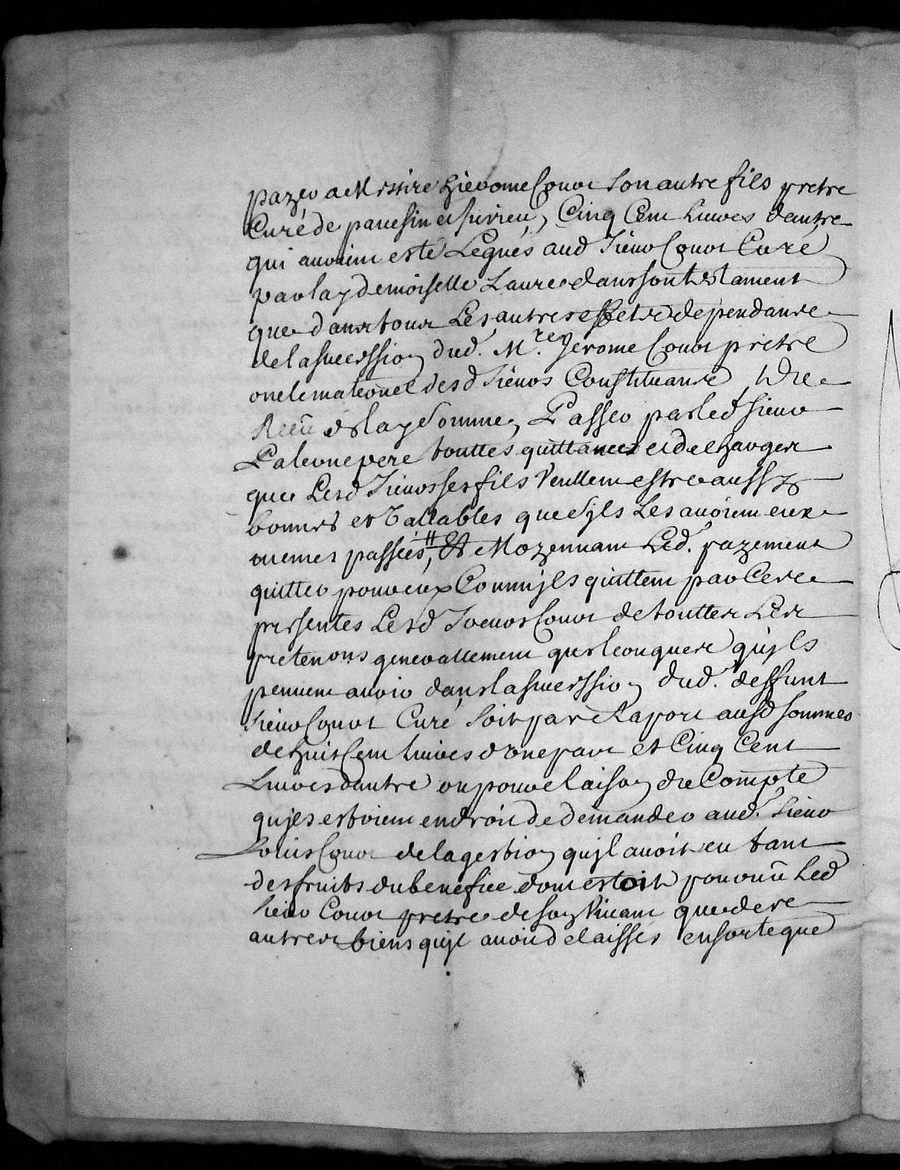 payer a Messire hierome Couot son autre fils pretre
Curé de panessin et Sirieu, Cinq Cent Liures dautre
qui auoient esté Legués aud Sieur Couot Curé
par lad demoiselle Laure dans son testament
que dans tous Les autres effets dependans
de la succession dud. Mre Jerome Couot pretre
oncle maternel desd Sieurs Constituans
Receu de lad Somme, Passer par led Sieur
pere touttes quittances et decharges
que Lesd Sieurs ses fils Veullent estre aussy
bonnes et Vallables que sijls Les auoient eux
memes passées, Et Moyennant Led. payement
quitter pour eux Comm ijls quittent par Ces
presentes Lesd Sieurs Couot de touttes Les
pretentions generallement quelconques quijls
peuuent auoir dans la succession dud. deffunt
Sieur Couot Curé soit par Raport ausd sommes
de huit Cent liures dune part et Cinq Cent
Liures dautre ou pour Raison du Compte
quijls estoient en droit de demander aud. Sieur
Louis Couot de la gestion quijl auoit eu tant
des fruits du benefice dont estoit pourueü Led
Sieur Couot pretre de son Viuant que des
autres biens quijl auoit delaissés ensorte que